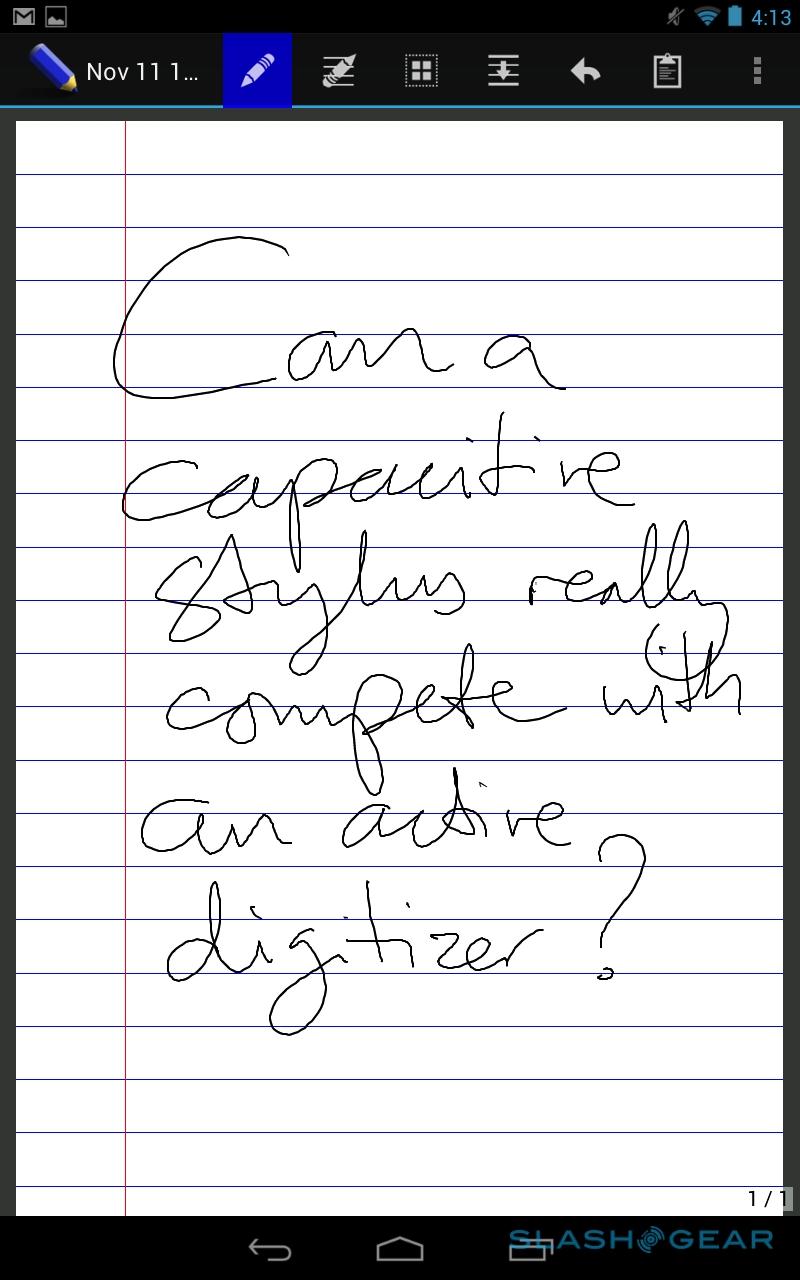 4:13
Nov 11 1...
Can a
capacitive
stylus really
compete with
an active
digitizer?
1 / 1
SLASHGEAR